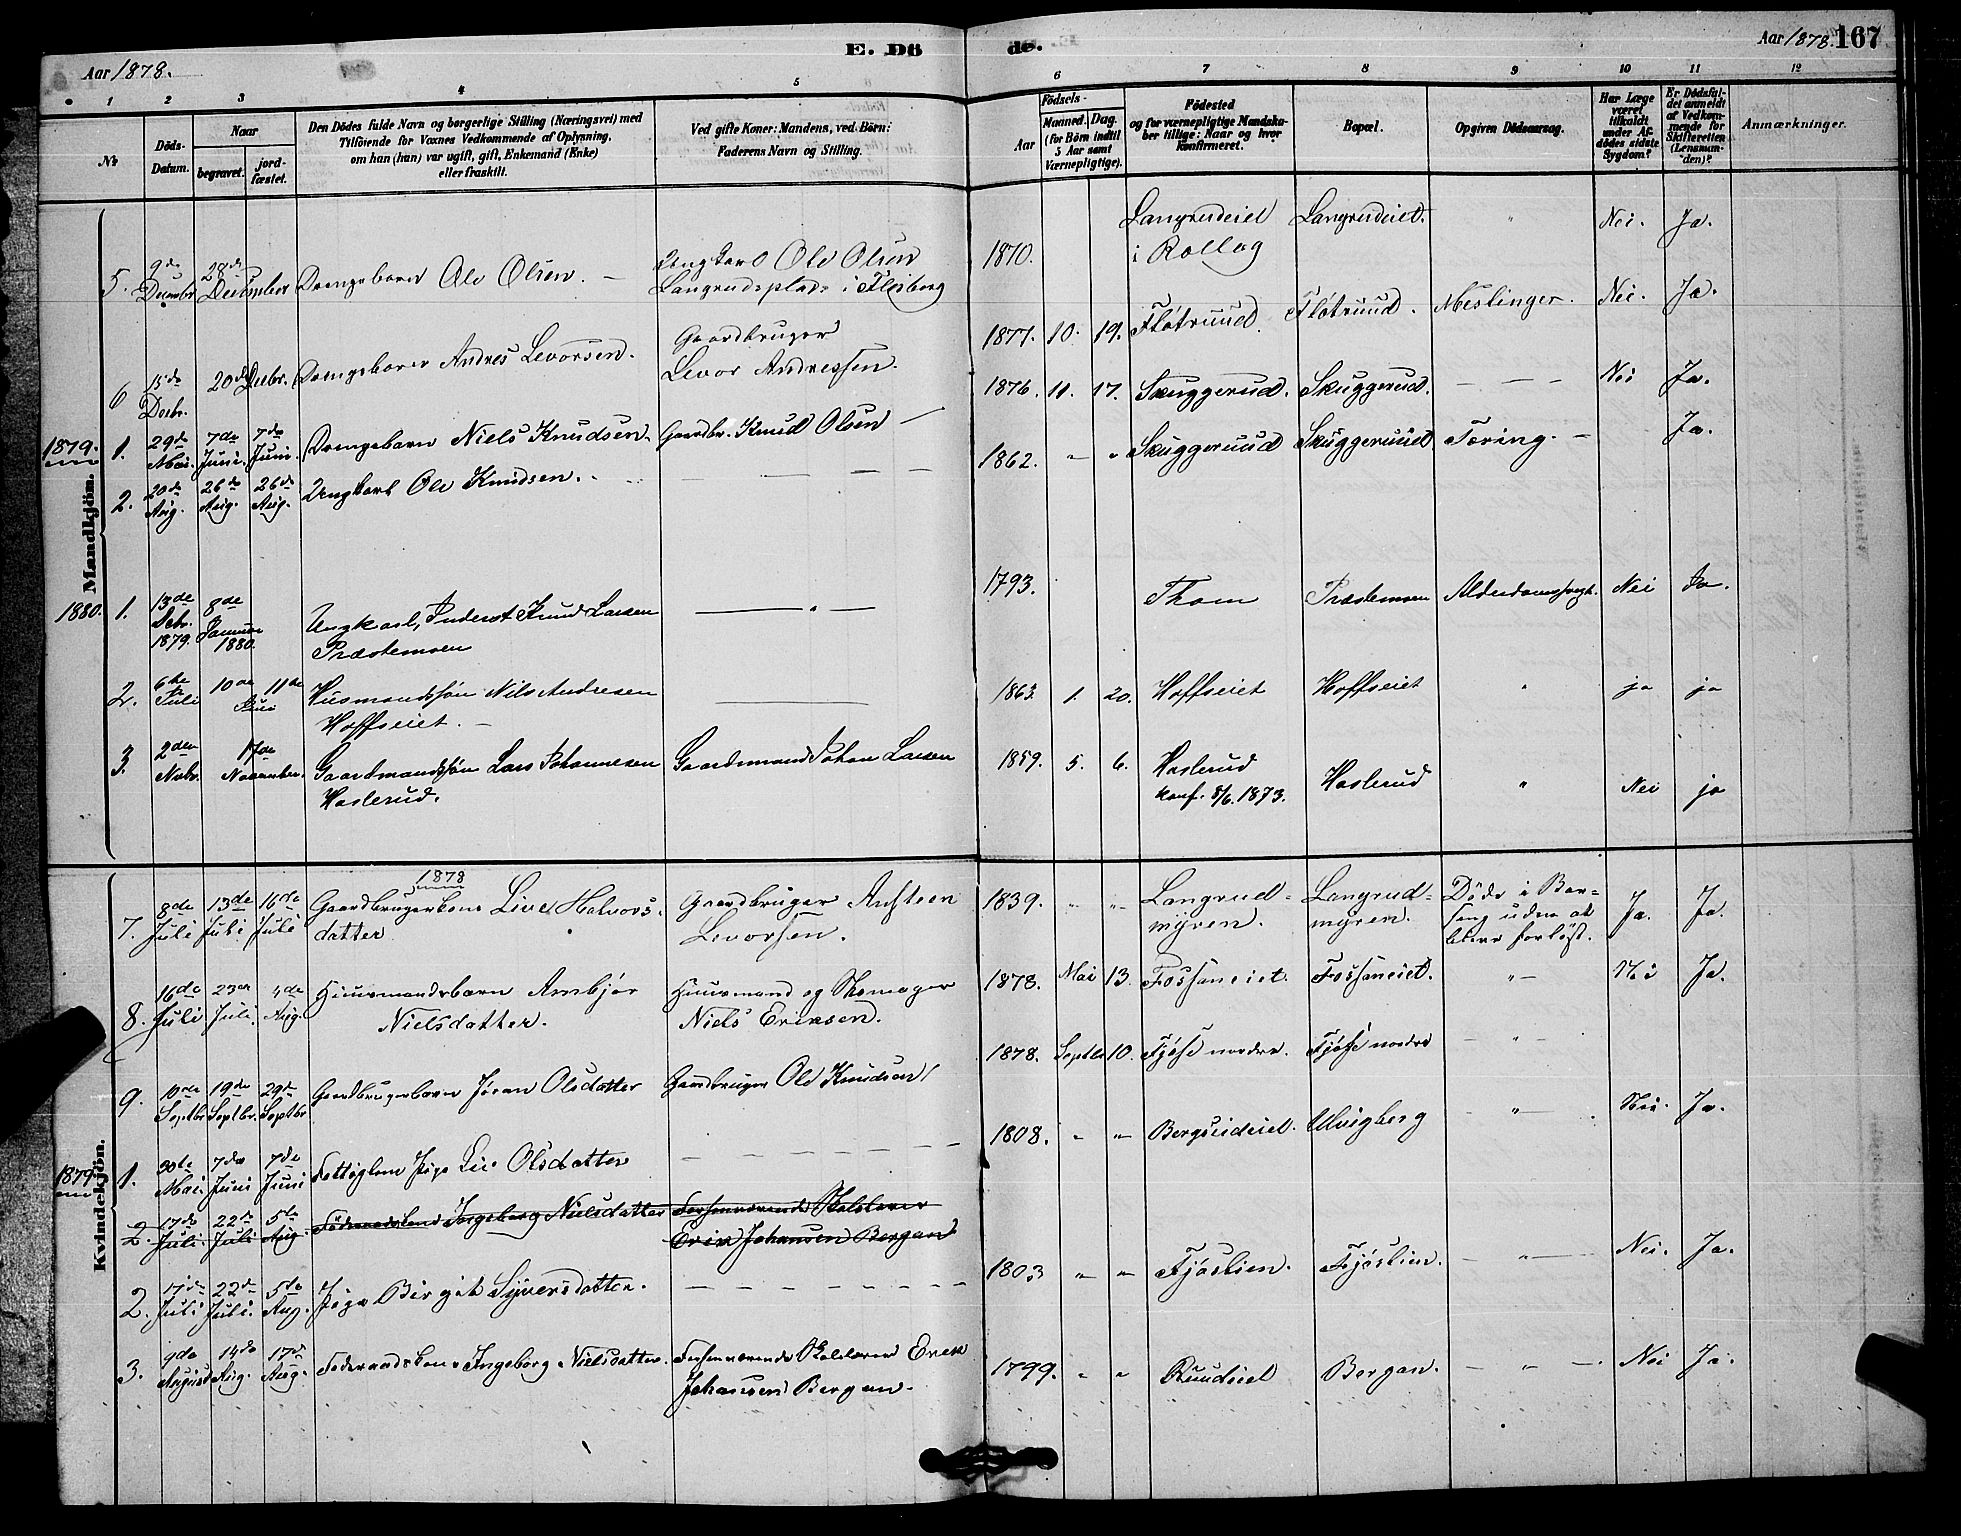 E. Dö
de.
Aar 1878.
Aar 1878. 167
1 2 3 4 5
6 7 8 9 10 11 12
No
Döds-
Datum.
Naar
begravet.
jord-
fæstet.
Den Dödes fulde Navn og borgerlige Stilling (Næringsvei) med
Tilföiende for Voxnes Vedkommende af Oplysning,
om han (hun) var ugift, gift, Enkemand (Enke)
eller fraskilt.
Ved gifte Koner: Mandens, ved Börn:
Faderens Navn og Stilling.
Födsels-
Aar
Maaned. Dag.
(for Börn indtil
5 Aar samt
Værnepligtige).
Födested
og for værnepligtige Mandska-
ber tillige: Naar og hvor
konfirmeret.
Bopæl.
Opgiven Dödsaarsag.
Har Læge
været
tilkaldt
under Af-
dödes sidste
Sygdom?
Er Dödsfal-
det anmeldt
af Vedkom-
mende for
Skifteretten
(Lensman-
den)?
Anmærkninger.
Mandkjön.
5. 9de Decembr 28de December Drengebarn Ole Olsen. — Ungkarl Ole Olsen
Langrudsplads i Flesberg
1870. Langrudeiet
i Rollag Langrudeiet. " Nei. Ja.
6 15de Decbr. 20de Decbr. Drengebarn Andres Levorsen. Gaardbruger
Levor Andressen.
1877. 10. 19. Fløtruud. Fløtruud. Meslinger. Nei. Ja.
1879. 1. 29de Mai. 7de Juni. 7de Juni. Drengebarn Niels Knudsen. Gaardbr. Knud Olsen —
1876. 11. 17. Skuggerud. Skuggerud. — — — Nei Ja.
2. 20de Aug. 26de Aug. 26de Aug. Ungkarl Ole Knudsen. — — — —
1862. " " Skuggeruud Skuggeruud Tæring. — Ja.
1880. 1. 13de Debr. 1879. 8de Januar 1880. Ungkarl, Inderst Knud Larsen
Præstemoen — " —
1793. Thom Præstemoen Alderdomssvagh. Nei Ja.
2. 6te Juli 10de 11te Juli Husmandssøn Nils Andresen
Hoffseiet. —
1863. 1. 20. Hoffseiet Hoffseiet " ja ja
3. 2den Nobr. 17de November. Gaardmandssøn Lars Johannesen
Haslerud. Gaardmand Johan Larsen
1859. 5. 6. Haslerud
konf. 8/6. 1873. Haslerud " Nei ja
Kvindekjön.
1878
7. 8de Juli 13de Juli 16de Juli Gaardbrugerkone Live Halvors-
datter Gaardbruger Anfsteen
Levorsen.
1839. " " Langrud-
myren. Langrud-
myren. Døde i Bar-
selseng uden at
blive forløst. Ja. Ja.
8. 16de Juli 23de Juli. 4de Aug. Huusmandsbarn Ambjør
Nielsdatter. Huusmand og Skomager
Niels Eriksen.
1878. Mai 13. Fossaneiet. Fossaneiet. "— Nei Ja.
9. 10de Septbr 19de Septbr. 29de Septbr Gaardbrugerbarn Jøran Olsdatter Gaardbruger Ole Knudsen
1878. Septbr 10. Fjøse nordre. Fjøse nordre — " —
1879 1. 30te Mai. 7de Juni 7de Juni Fattiglem Pige Liv Olsdatter — — — —
1808. " " Bergseideiet. Ulvigberg — " — Nei. Ja.
2. 17de Juli. 22de Juli 5te Aug. Føderaadskone Ingeborg Nielsdatter Forhenværende Skolelærer
Erik Johansen Bergan
2. 17de Juli 22de Juli. 5te Aug. Pige Birgit Syversdatter. — — — —
1803 " " Fjøslien. Fjøslien. — " — Nei. Ja.
3. 9de August 14de Aug. 17de Aug. Føderaadskone Ingeborg Nielsdatter. Forhenværende Skolelærer Erik
Johansen Bergan.
1799. " " Ruudeiet Bergan. — " —. Nei Ja.